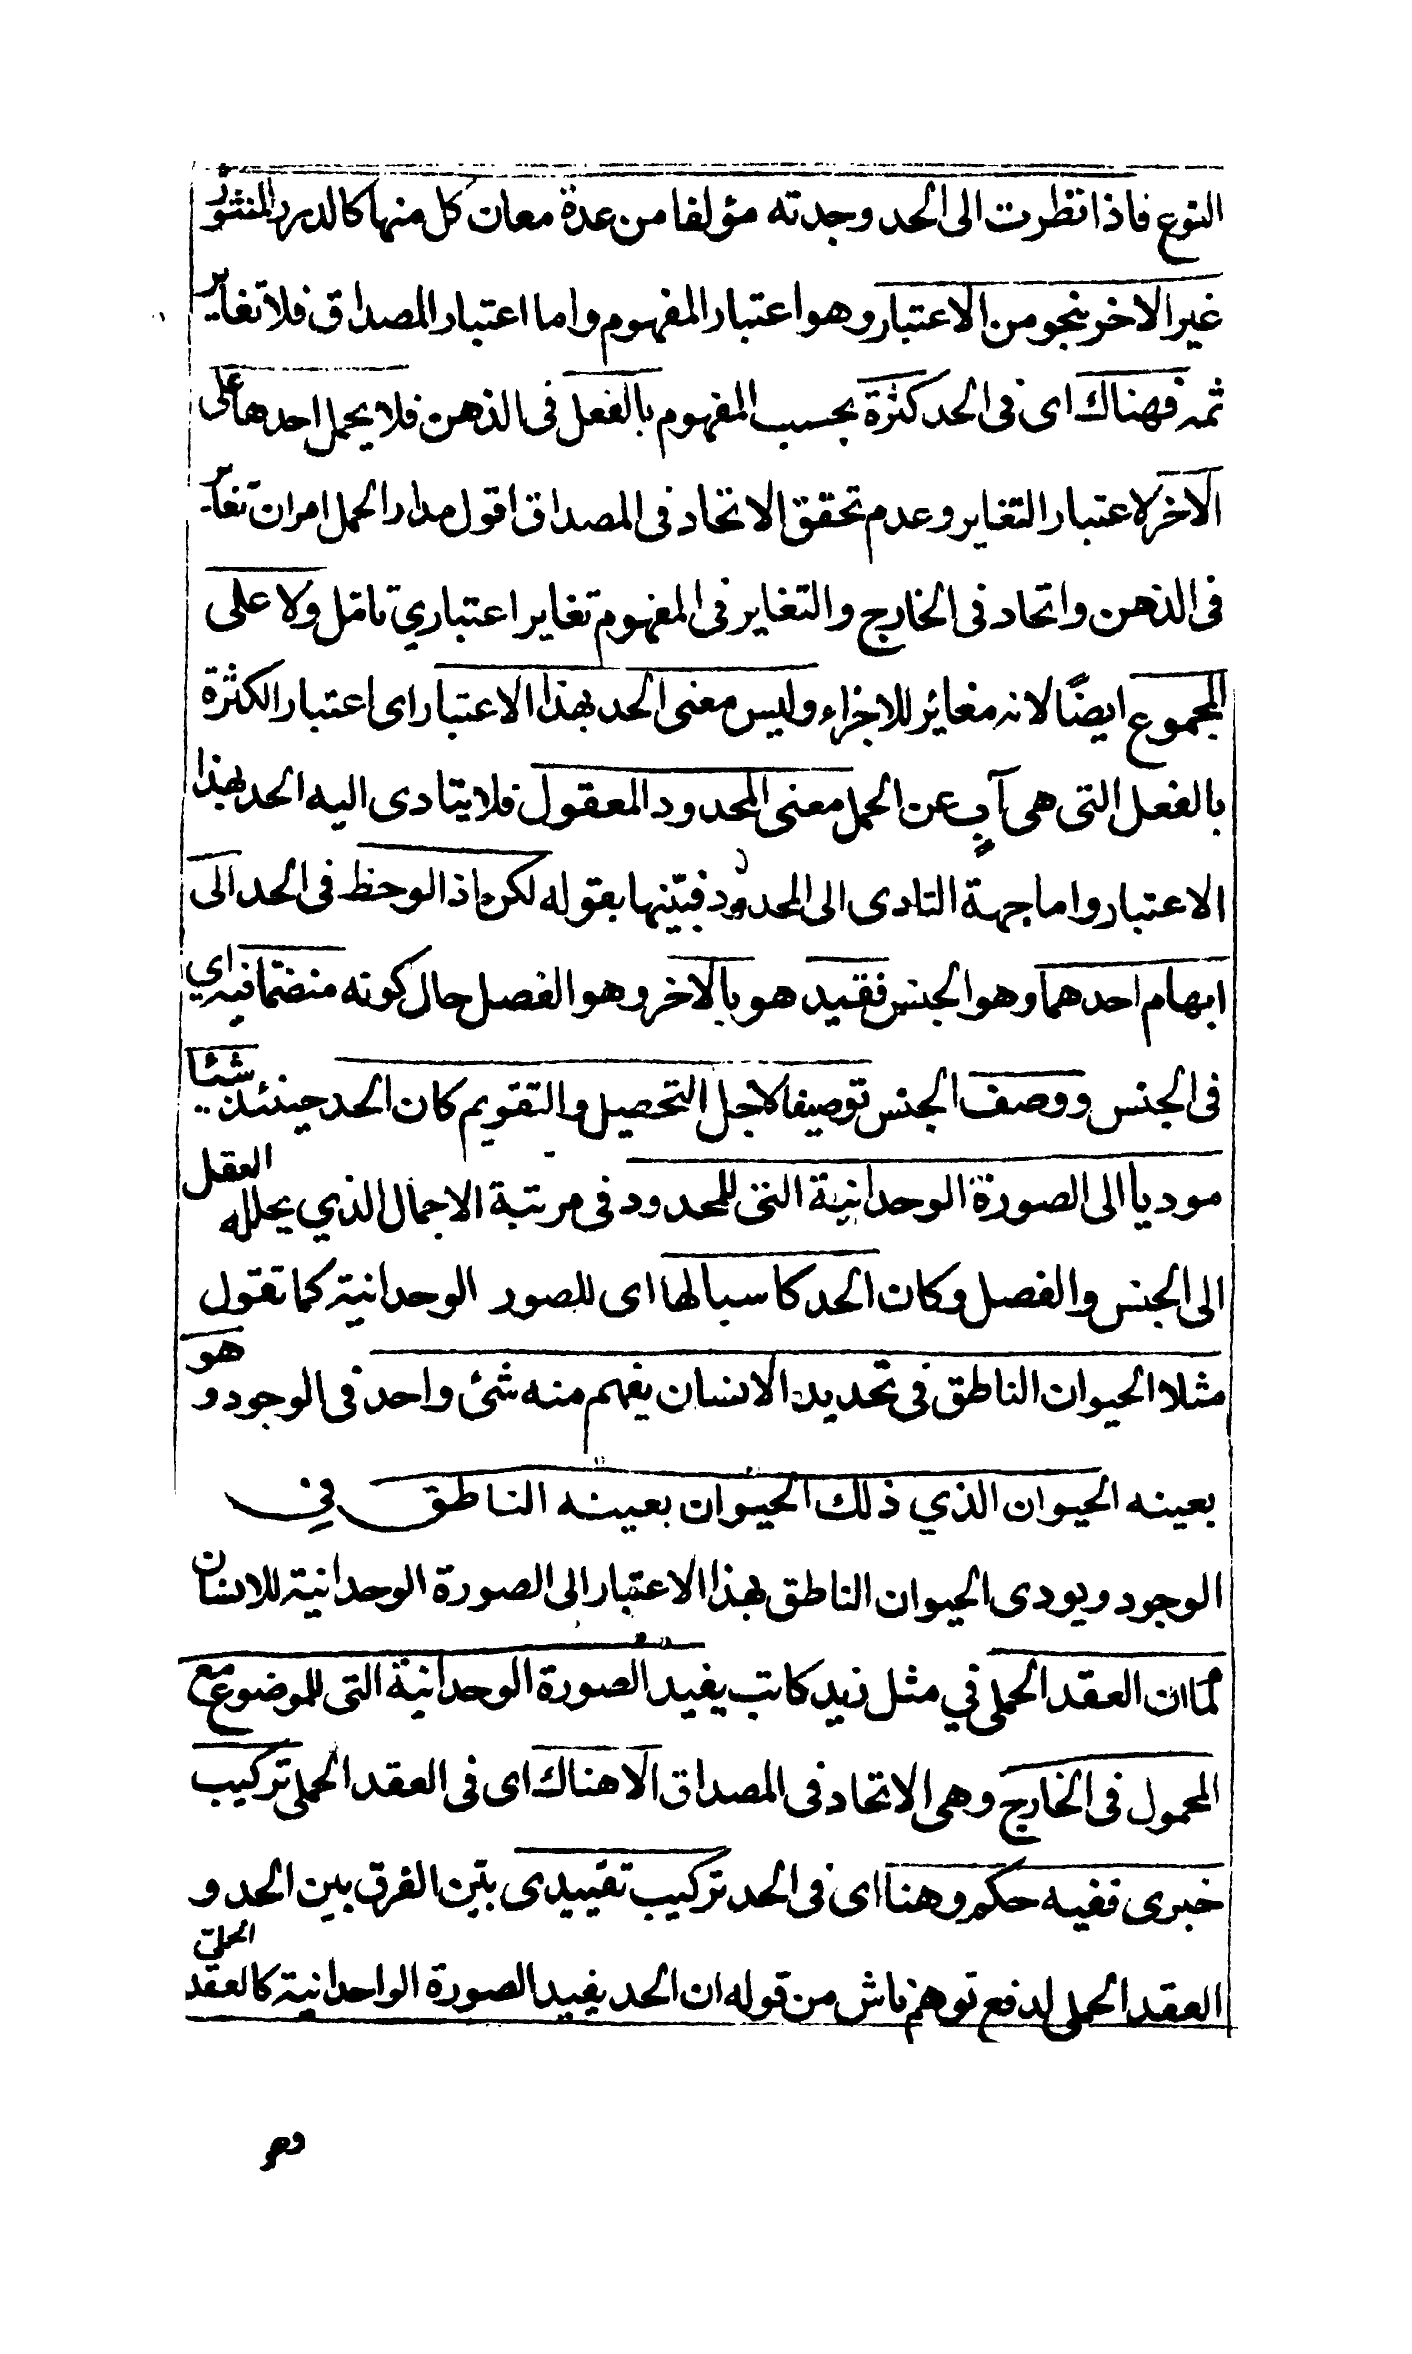 النوع فاذا نظرت الى الحد وجدته مؤلفا من عدة معان كل منها كالدرر المنثور
غير الاخر بنحو من الاعتبار وهو اعتبار المفهوم واما اعتبار المصداق فلا تغاير
ثمه فهناك اى فى الحد كثرة بحسب المفهوم بالفعل فى الذهن فلا يحمل احدها على
الاخر لاعتبار التغاير وعدم تحقق الاتحاد فى المصداق اقول مدار الحمل امران تغاير
فى الذهن واتحاد فى الخارج والتغاير فى المفهوم تغاير اعتباري تامّل ولا على
المجموع ايضًا لانه مغائر للاجزاء وليس معنى الحد بهذا الاعتبار اى اعتبار الكثرة
بالفعل التى هى آبٍ عن الحمل معنى المحدود المعقول فلا يتادى اليه الحد بهذا
الاعتبار واما جهة التادى الى المحدود فبيّنها بقوله لكن اذا لوحظ فى الحد الى
ابهام احدهما وهو الجنس فقيد هو بالاخر وهو الفصل حال كونه منضمّا فيه اي
فى الجنس ووصف الجنس توصيفا لاجل التحصيل والتقويم كان الحد حينئذ شئا
موديا الى الصورة الوحدانية التى للمحدود فى مرتبة الاجمال الذي يحلله العقل
الى الجنس والفصل وكان الحد كاسبا لها اى للصور الوحدانية كما تقول
مثلا الحيوان الناطق فى تحديد الانسان يفهم منه شئ واحد فى الوجود و هو
بعينه الحيوان الذي ذلك الحيوان بعينه الناطق في
الوجود ويودى الحيوان الناطق بهذا الاعتبار الى الصورة الوحدانية للانسان
لمّا ان العقد الحملى في مثل زيد كاتب يفيد الصورة الوحدانية التى للموضوع مع
المحمول فى الخارج وهى الاتحاد فى المصداق الا هناك اى فى العقد الحملى تركيب
خبرى ففيه حكم وهنا اى فى الحد تركيب تقييدى بيّن الفرق بين الحد و
العقد الحملى لدفع توهم ناش من قوله ان الحد يفيد الصورة الواحدانية كالعقد الحملىّ